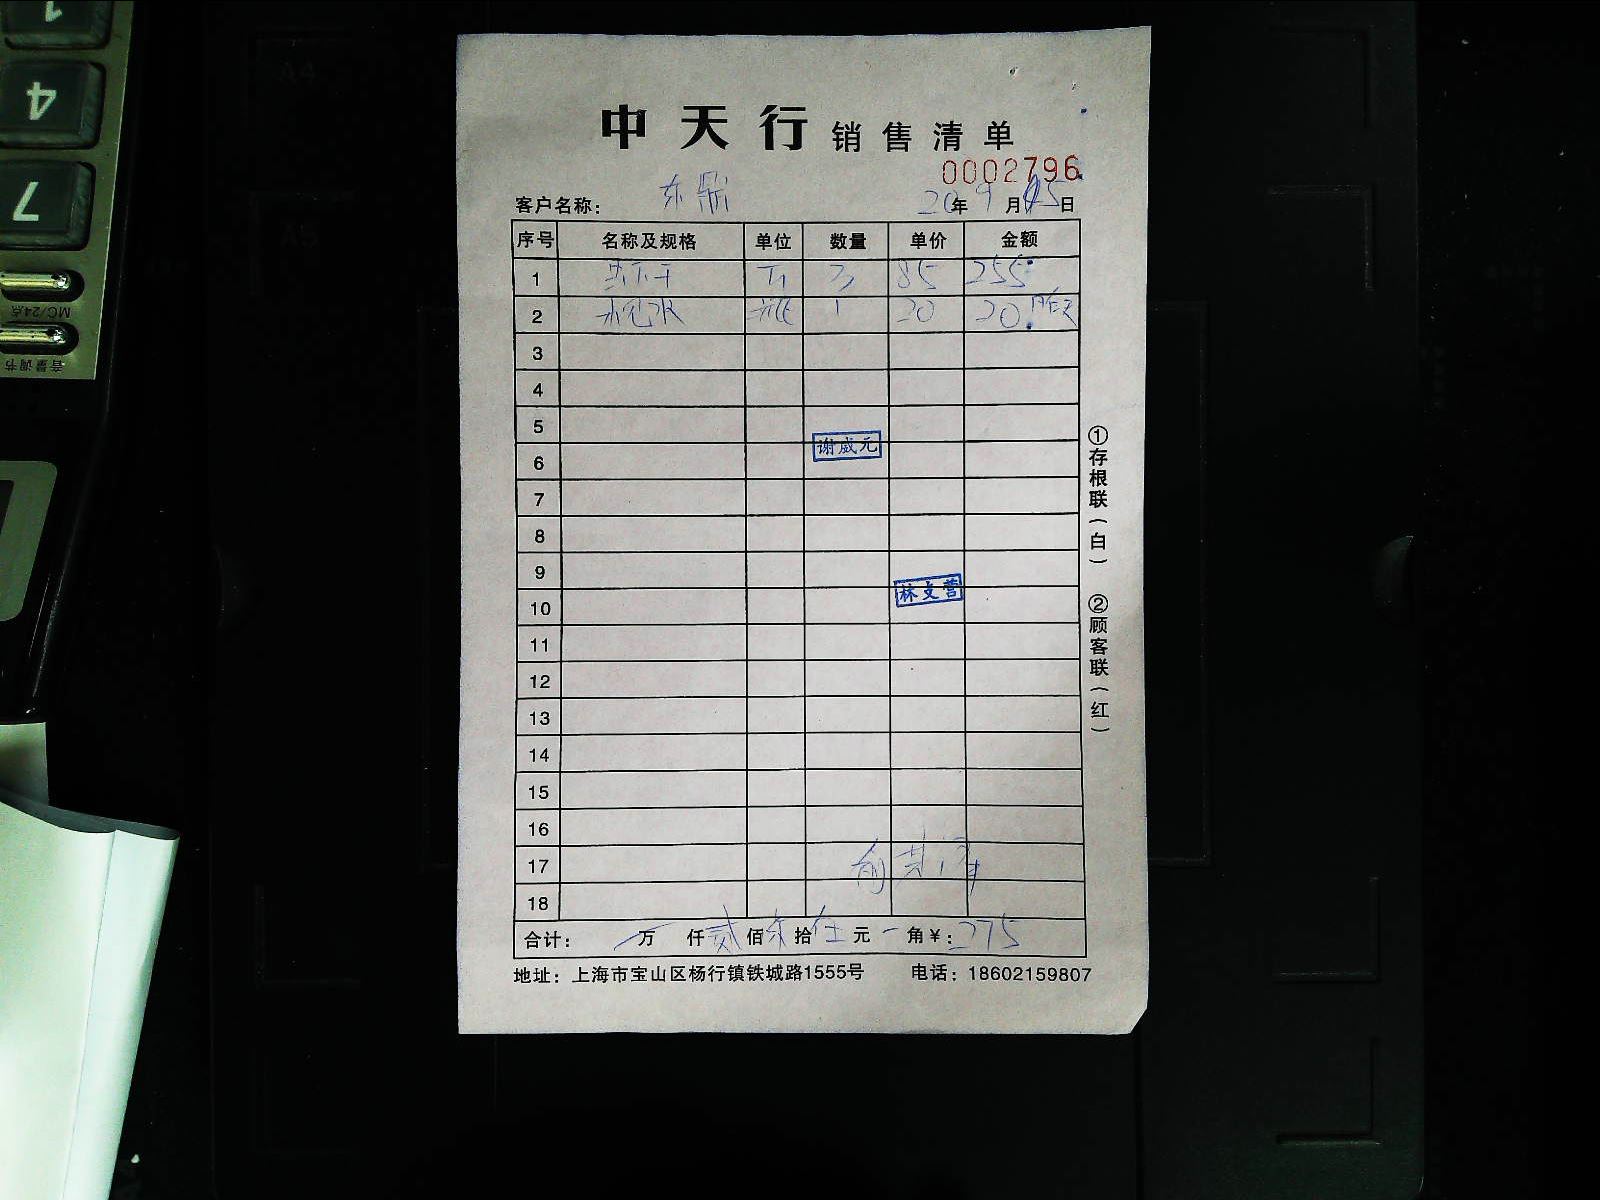 中天行 销售清单
0002796
客户名称: 东鼎 20年9月15日
序号 名称及规格 单位 数量 单价 金额
1 3 85 255
2 瓶 1 20 20
3
4
5
谢威元
6
7
8
9
林文营
10
11
12
13
14
15
16
17
18
合计: 万 仟贰佰柒拾伍元 角¥:275
地址:上海市宝山区杨行镇铁城路1555号 电话:18602159807
①存根联(白) ②顾客联(红)
1
4
7
MC/24点
音量调节
A4
A5